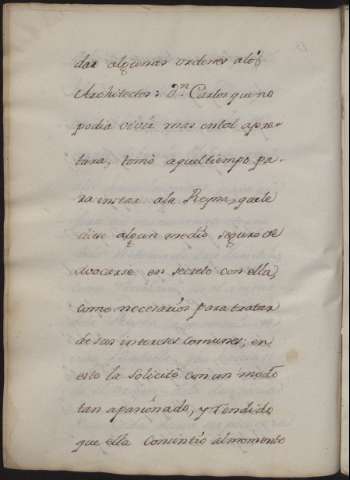 dar algunas ordenes alos
Architectos: Dn. Carlos que no
podia vivir mas ental apre-
tura, tomó aqueltiempo pa-
ra instar ala Reyna, quele
diese algun medio seguro de
avocarse en secreto con ella,
como necesarios para tratar
de sus intereses comunes; en
esto la solicitó con un modo
tan apasionado, y rendido
que ella consintió almomento